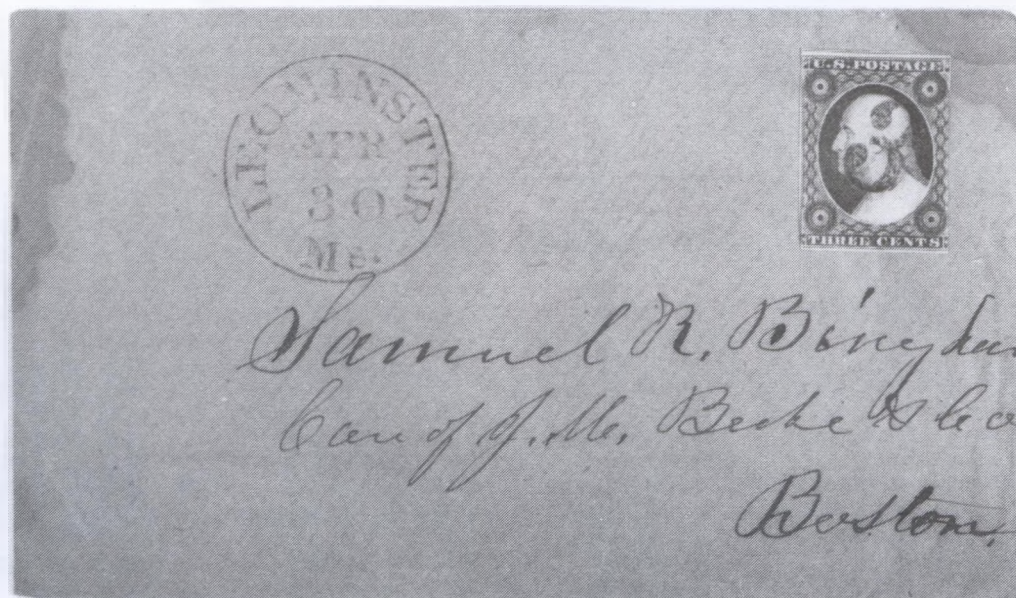 LEOMINSTER
APR
30
Ms.
U.S. POSTAGE
THREE CENTS
Samuel R. Bingham
Care of J. M. Beebe & Co
Boston,